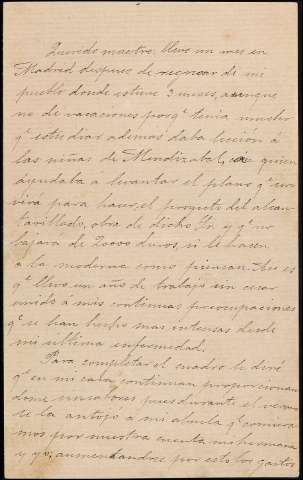 Querido maestro: llevo un mes en
Madrid despues de regresar de mi
pueblo donde estuve 3 meses, aunque
no de vacaciones porq.e tenia mucho
q.e estudiar ademas daba leccion á
las niñas de Mendizabal, á quien
ayudaba á levantar el plano q.e ser
virá para hacer el proyecto del alcan
tarillado, obra de dicho Sr. y q.e no
bajará de 20000 duros, si lo hacen
a la moderna como piensan. Asi es
q.e llevo un año de trabajo sin cesar
unido á mis continuas preocupaciones
q.e se han hecho mas intensas desde
mi última enfermedad.
Para completar el cuadro le diré
q.e en mi casa continuan proporcionan
dome sinsabores pues durante el verano
se le antojó a mi abuela q.e comiera
mos por nuestra cuenta mi hermana
y yo, aumentandose por esto los gastos